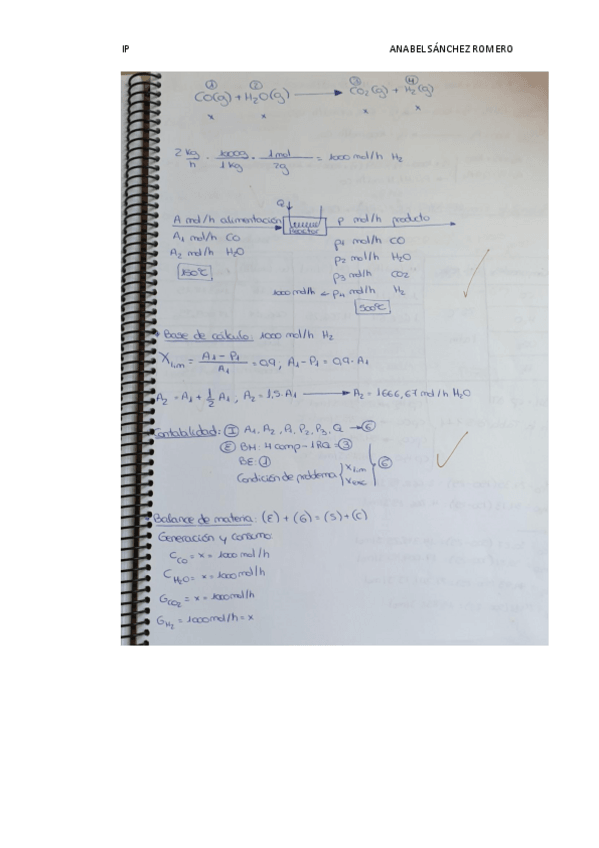 IP ANABEL SÁNCHEZ ROMERO
① ② ③ ④
CO(g) + H₂O(g) ⟶ CO₂(g) + H₂(g)
x x x x
2 kg/h · 1000g/1kg · 1mol/2g = 1000 mol/h H₂
Q
A mol/h alimentación reactor P mol/h producto
A₁ mol/h CO P₁ mol/h CO
A₂ mol/h H₂O P₂ mol/h H₂O
150ºC P₃ mol/h CO₂
1000 mol/h ← P₄ mol/h H₂
500ºC
* Base de cálculo: 1000 mol/h H₂
Xlim = (A₁ - P₁)/A₁ = 0,9, A₁ - P₁ = 0,9·A₁
A₂ = A₁ + 1/2 A₁, A₂ = 1,5·A₁ ⟶ A₂ = 1666,67 mol/h H₂O
Contabilidad: Ⓘ A₁, A₂, P₁, P₂, P₃, Q → ⑥
Ⓔ BM: 4 comp - 1RQ = ③
BE: ①
Condición de problema { Xlim
Xexc } ⑥
Balance de materia: (E) + (G) = (S) + (C)
Generación y consumo:
C_CO = x = 1000 mol/h
C_H₂O = x = 1000 mol/h
G_CO₂ = x = 1000 mol/h
G_H₂ = 1000 mol/h = x